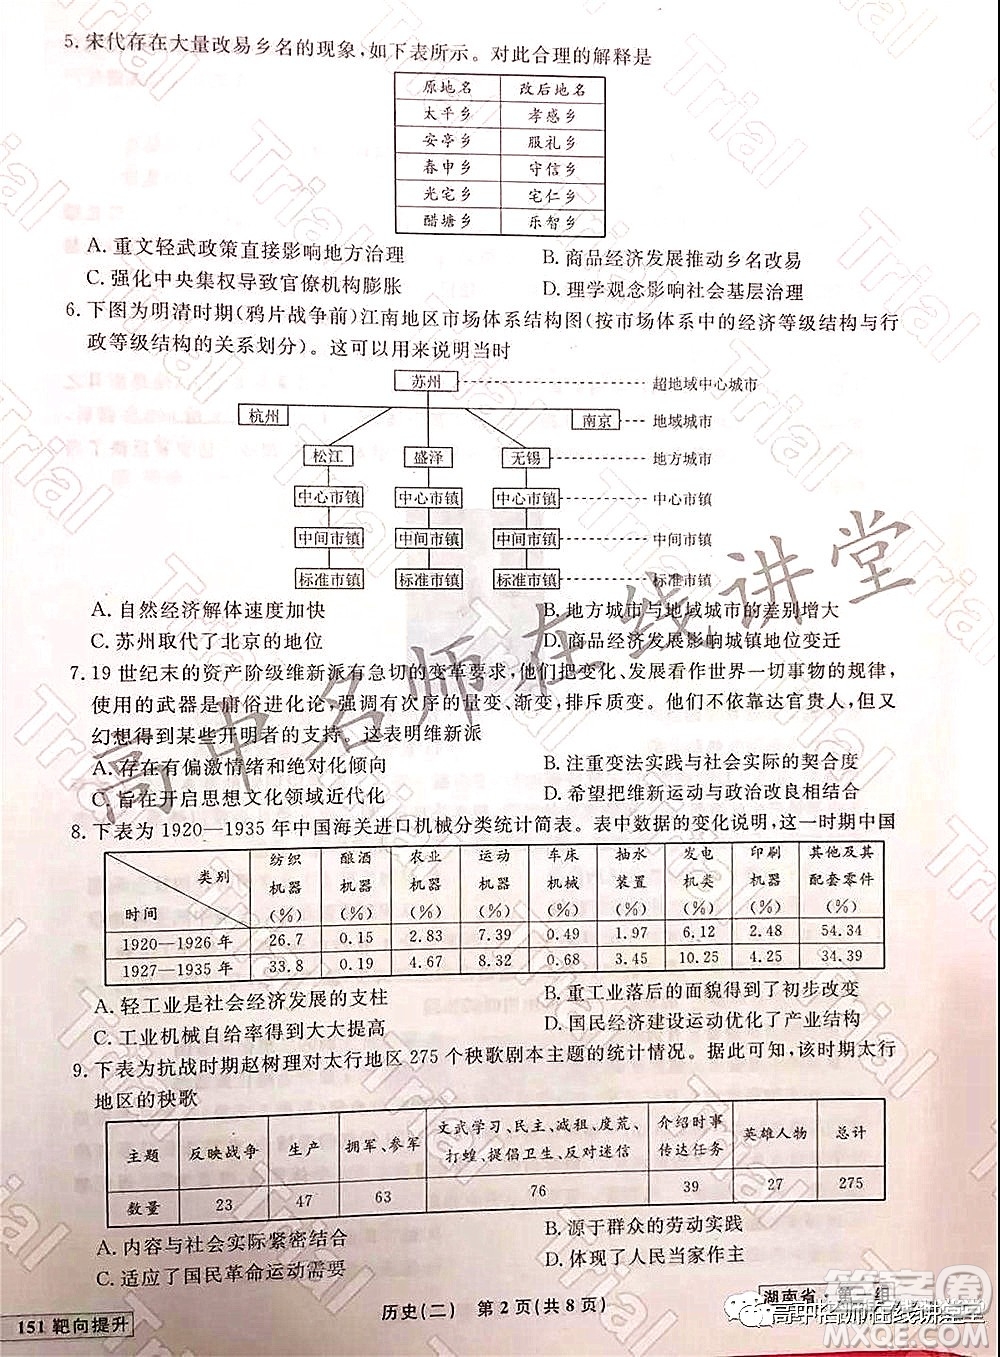 5. 宋代存在大量改易乡名的现象,如下表所示。对此合理的解释是
原地名 改后地名
太平乡 孝感乡
安亭乡 服礼乡
春申乡 守信乡
光宅乡 宅仁乡
醋塘乡 乐智乡
A. 重文轻武政策直接影响地方治理 B. 商品经济发展推动乡名改易
C. 强化中央集权导致官僚机构膨胀 D. 理学观念影响社会基层治理
6. 下图为明清时期(鸦片战争前)江南地区市场体系结构图(按市场体系中的经济等级结构与行
政等级结构的关系划分)。这可以用来说明当时
苏州 超地域中心城市
杭州 南京 地域城市
松江 盛泽 无锡 地方城市
中心市镇 中心市镇 中心市镇 中心市镇
中间市镇 中间市镇 中间市镇 中间市镇
标准市镇 标准市镇 标准市镇 标准市镇
A. 自然经济解体速度加快 B. 地方城市与地域城市的差别增大
C. 苏州取代了北京的地位 D. 商品经济发展影响城镇地位变迁
7. 19 世纪末的资产阶级维新派有急切的变革要求,他们观察运动、发展看作世界一切事物的规律,
使用的武器是庸俗进化论,强调有次序的量变、渐变,排斥质变。他们不依靠达官贵人,却又
幻想得到某些开明者的支持。这表明维新派
A. 存在有偏激情绪和绝对化倾向 B. 注重变法实践与社会实际的契合度
C. 旨在开启思想文化领域近代化 D. 希望把维新运动与政治改良相整合
8. 下表为 1920—1935 年中国海关进口机械分类统计简表。表中数据的变化说明,这一时期中国
类别 时间 纺织机器(%) 酿酒机器(%) 农业机器(%) 运动机器(%) 车床机械(%) 抽水装置(%) 发电机类(%) 印刷机器(%) 其他及其配套零件(%)
1920—1926 年 26.7 0.15 2.83 7.39 0.49 1.97 6.12 2.48 54.34
1927—1935 年 33.8 0.19 4.67 8.32 0.68 3.45 10.25 4.25 34.39
A. 轻工业是社会经济发展的支柱 B. 重工业落后的面貌得到了初步改变
C. 工业机械自给率得到大大提高 D. 国民经济建设运动优化了产业结构
9. 下表为抗战时期赵树理对太行地区 275 个秧歌剧本主题的统计情况。据此可知,该时期太行
地区的秧歌
主题 反映战争 生产 拥军、参军 文武学习、民主、减租、度荒、打蝗、提倡卫生、反对迷信 介绍时事传达任务 英雄人物 总计
数量 23 47 63 76 39 27 275
A. 内容与社会实际紧密结合 B. 源于群众的劳动实践
C. 适应了国民革命运动需要 D. 体现了人民当家作主
历史(二) 第 2 页(共 8 页)
151 靶向提升
湖南省·第一组
高中名师在线讲堂
Trial
答案圈
MXQE.COM